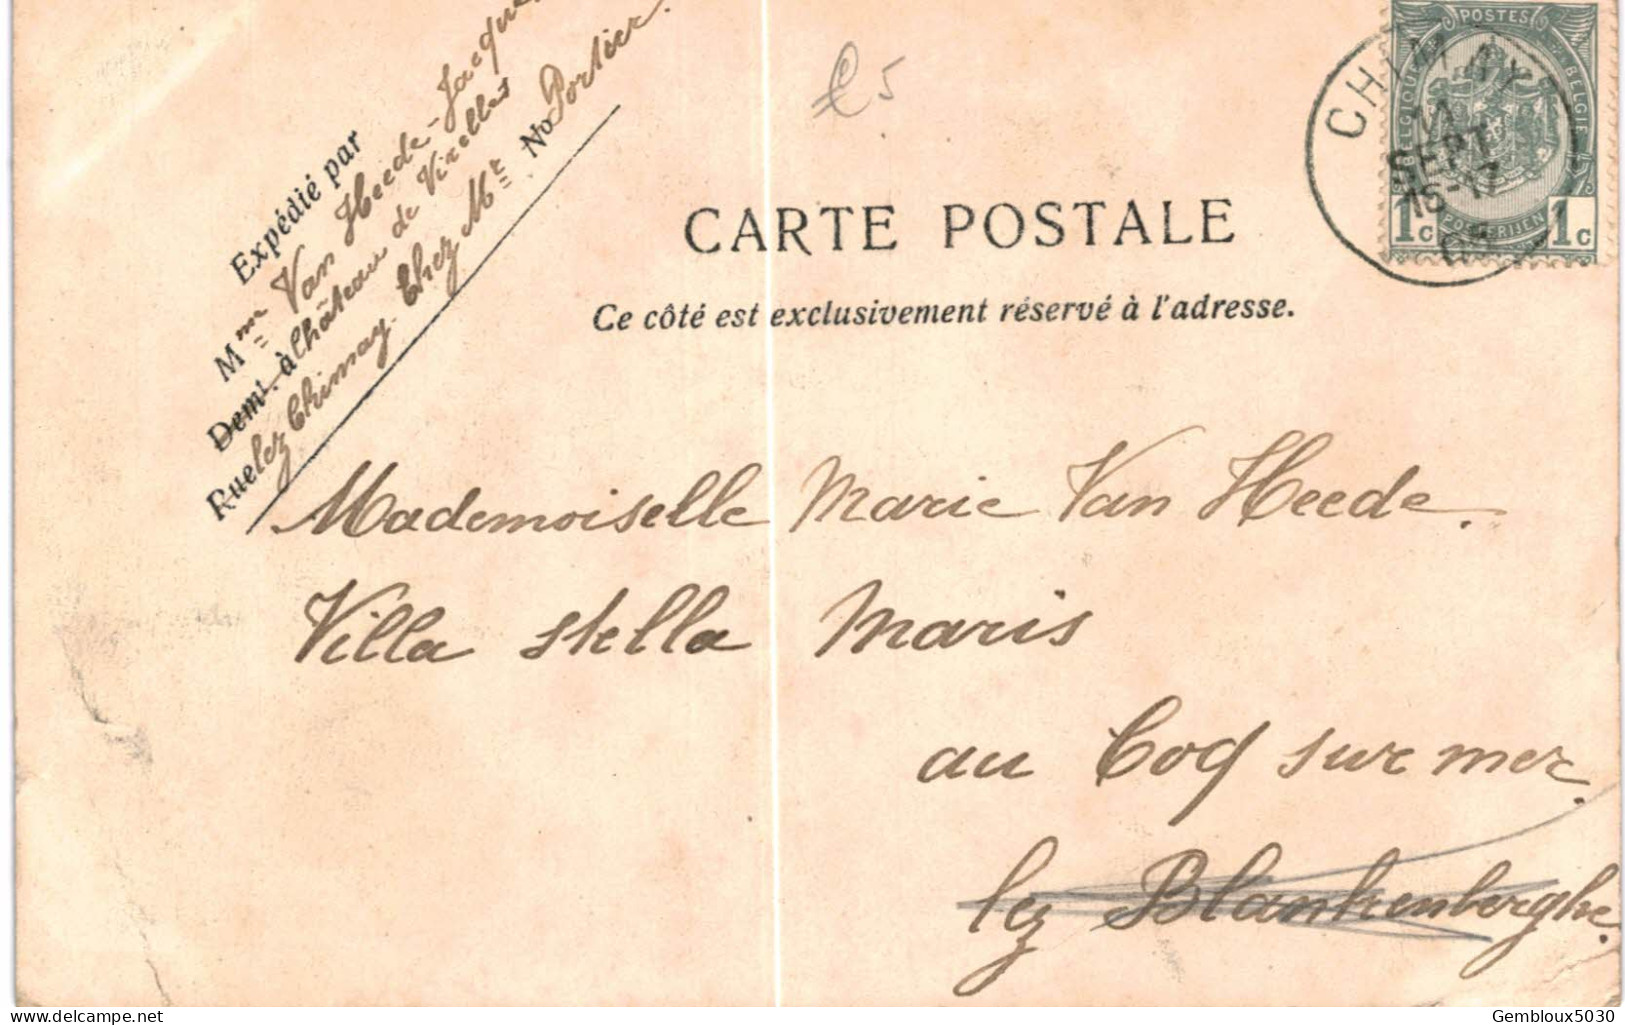 Expédié par
Mme Van Heede-Jacques
Demt. à Château de Virelles
Rue lez Chimay. Chez Mr No Portier.
€ 5
POSTES
BELGIQUE
BELGIE
1c POSTERIJEN 1c
CHIMAY
11
SEPT
16-17
CARTE POSTALE
Ce côté est exclusivement réservé à l'adresse.
Mademoiselle Marie Van Heede.
Villa Stella Maris
au Coq sur mer.
lez Blankenberghe.
delcampe.net
Gembloux5030